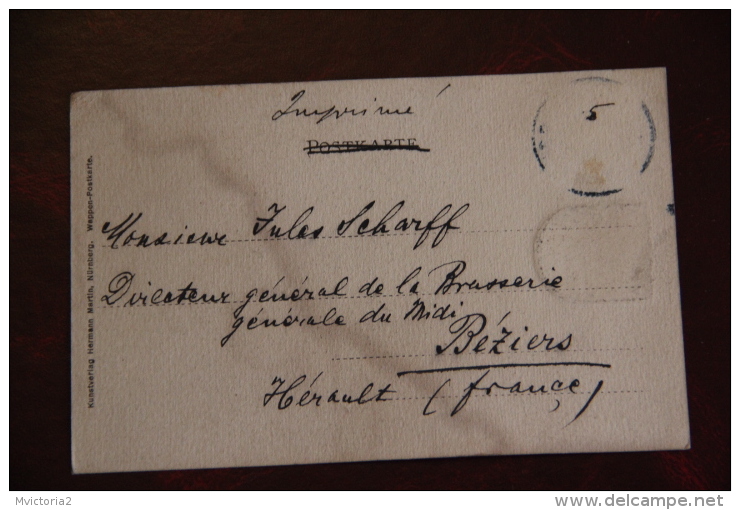 Imprimé
POSTKARTE
5
Monsieur Jules Scharff
Directeur général de la Brasserie
générale du Midi
Béziers
Hérault (france)
Kunstverlag Hermann Martin, Nürnberg. Wappen-Postkarte.
Mvictoria2
http://www.delcampe.net